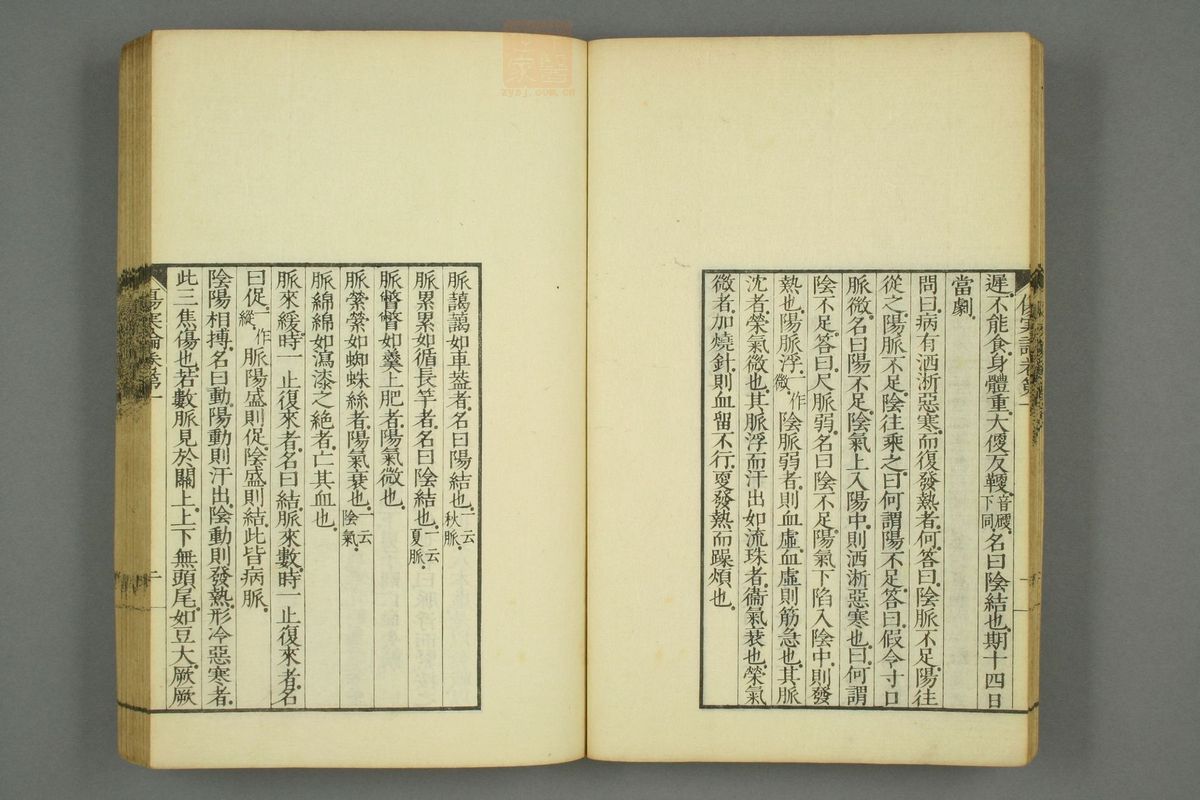 遲.不能食.身體重.大便反鞕.音硬下同.名曰陰結也.期十四日
當劇.
問曰.病有洒淅惡寒.而復發熱者.何.答曰.陰脈不足.陽往
從之.陽脈不足.陰往乘之.曰.何謂陽不足.答曰.假令寸口
脈微.名曰陽不足.陰氣上入陽中.則洒淅惡寒也.曰.何謂
陰不足.答曰.尺脈弱.名曰陰不足.陽氣下陷入陰中.則發
熱也.陽脈浮.一作微.陰脈弱者.則血虛.血虛則筋急也.其脈
沈者.榮氣微也.其脈浮.而汗出如流珠者.衞氣衰也.榮氣
微者.加燒針.則血留不行.更發熱而躁煩也.
脈藹藹如車蓋者.名曰陽結也.一云秋脈.
脈累累如循長竿者.名曰陰結也.一云夏脈.
脈瞥瞥如羹上肥者.陽氣微也.
脈縈縈如蜘蛛絲者.陽氣衰也.一云陰氣.
脈綿綿如瀉漆之絕者.亡其血也.
脈來緩.時一止復來者.名曰結.脈來數.時一止復來者.名
曰促.一作縱.脈陽盛則促.陰盛則結.此皆病脈.
陰陽相搏.名曰動.陽動則汗出.陰動則發熱.形冷惡寒者.
此三焦傷也.若數脈見於關上.上下無頭尾.如豆大.厥厥
傷寒論卷第一
二
醫家
zysj.com.cn